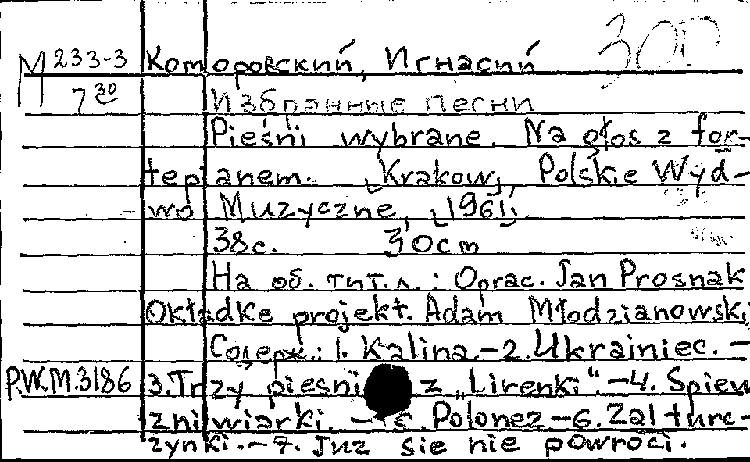 М 233-3 Коморовский, Игнасий 300
7 30 Избранные песни
Pieśni wybrane. Na głos z for-
tepianem. [Krakow], Polskie Wyd-
wo Muzyczne, [1961].
38с. 30cm
На об. тит.л.: Oprac. Jan Prosnak
Okładke projekt. Adam Młodzianowski
Содерж.: 1. Kalina.-2. Ukrainiec.-
P.W.M.3186 3. Trzy piesni z "Lirenki".-4. Spiew
zniwiarki.-5. Polonez-6. Zal turc-
zynki.-7. Juz sie nie powroci.